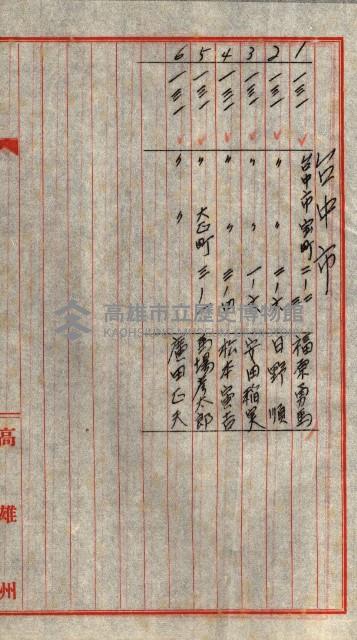 台中市
1 一三一 台中市宝町二ー一二 福栄勇馬
2 一三一 〃 〃 二ー六 日野順
3 一三一 〃 〃 一ー六 安田稲実
4 一三一 〃 〃 三ー四 松本寅吉
5 一三一 〃 大正町三ー一 馬場彦太郎
6 一三一 〃 〃 廣田正夫
高雄州
高雄市立歷史博物館
KAOHSIUNG MUSEUM OF HISTORY